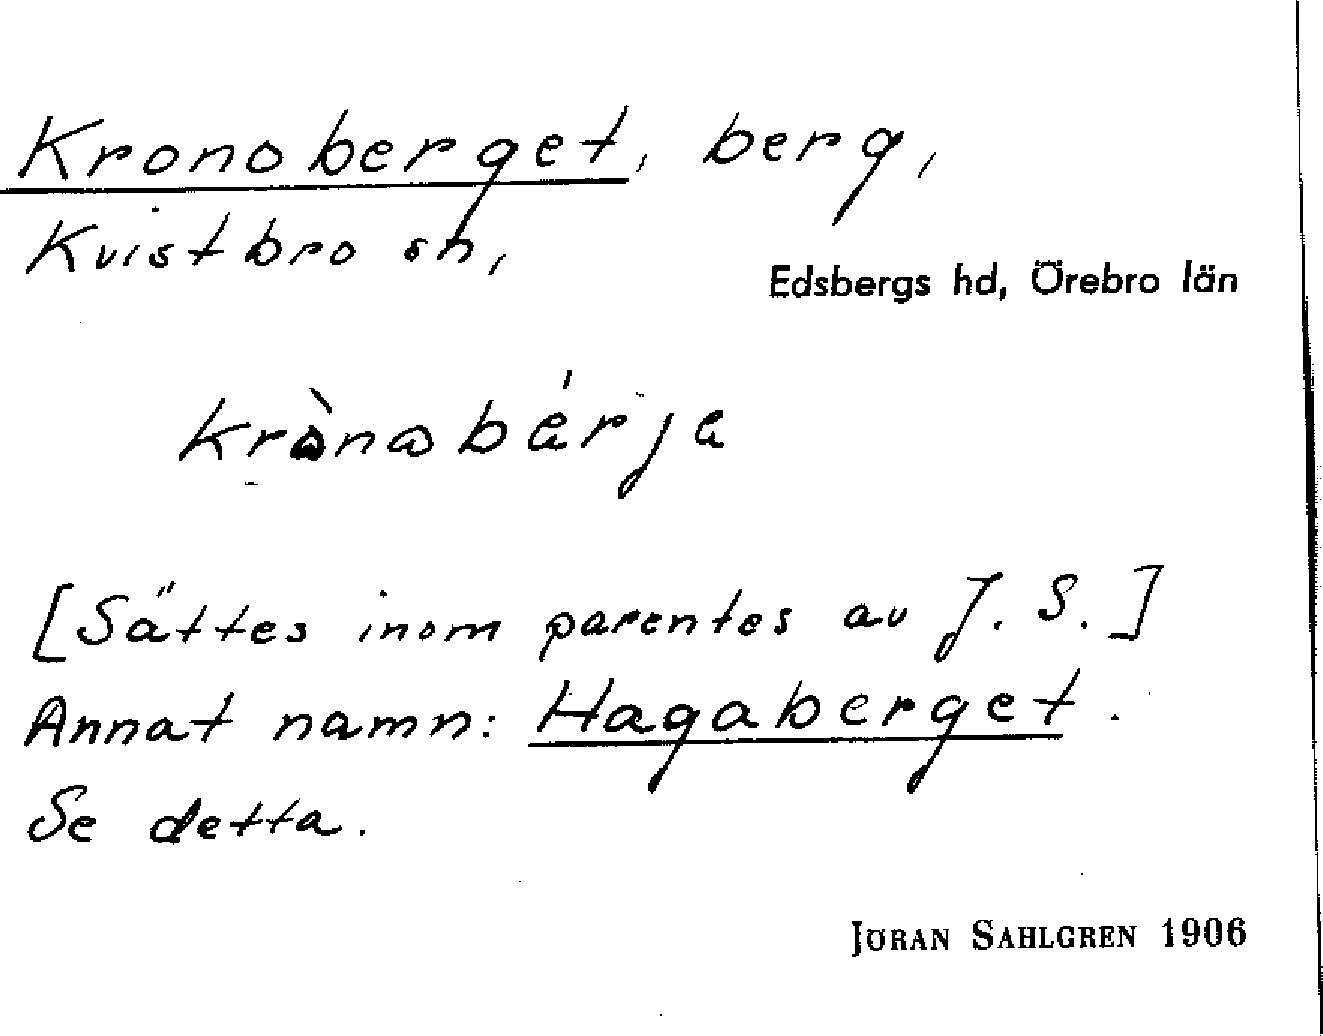 Kronoberget, berg,
Kvistbro sn,
Edsbergs hd, Örebro län
krònabérja
[Sättes inom parentes av J. S.]
Annat namn: Hagaberget.
Se detta.
JÖRAN SAHLGREN 1906